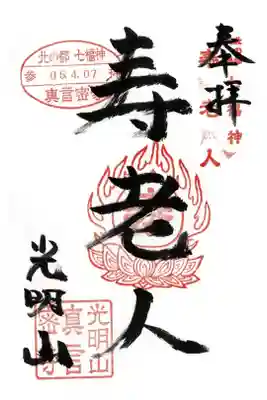 奉拝
寿老人
光明山
北の都 七福神
05.4.07
真言密寺
光明山
真言
密寺